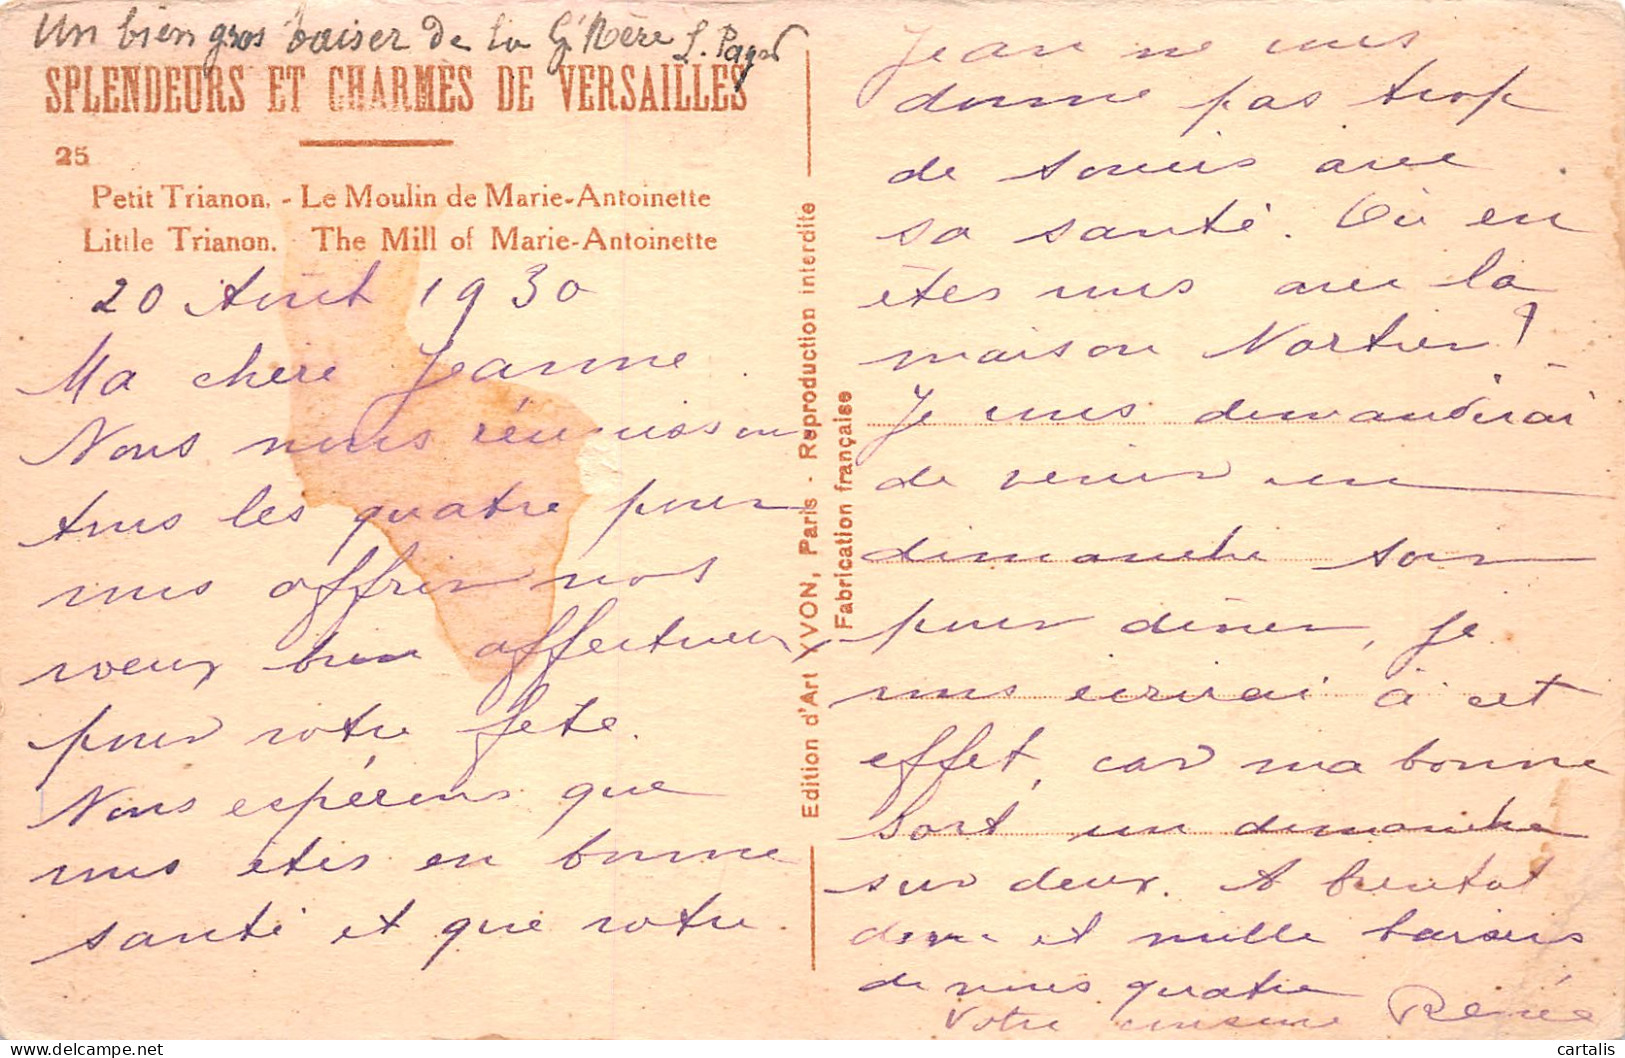 Un bien gros baiser de la G'Mère L. Pagès
SPLENDEURS ET CHARMES DE VERSAILLES
25
Petit Trianon. - Le Moulin de Marie-Antoinette
Little Trianon. The Mill of Marie-Antoinette
20 Août 1930
Ma chère Jeanne.
Nous nous réunissons
tous les quatre pour
vous offrir nos
voeux bien affectueux
pour votre fête.
Nous espérons que
vous êtes en bonne
santé et que votre
Edition d'Art YVON, Paris - Reproduction interdite
Fabrication française
Jean ne vous
donne pas trop
de soucis avec
sa santé. Où en
êtes vous avec la
maison Nortier?
Je vous demanderai
de venir un
dimanche soir
pour dîner, je
vous écrirai à cet
effet, car ma bonne
sort un dimanche
sur deux. A bientôt
donc et mille baisers
de nous quatre
Votre cousine Renée
cartalis